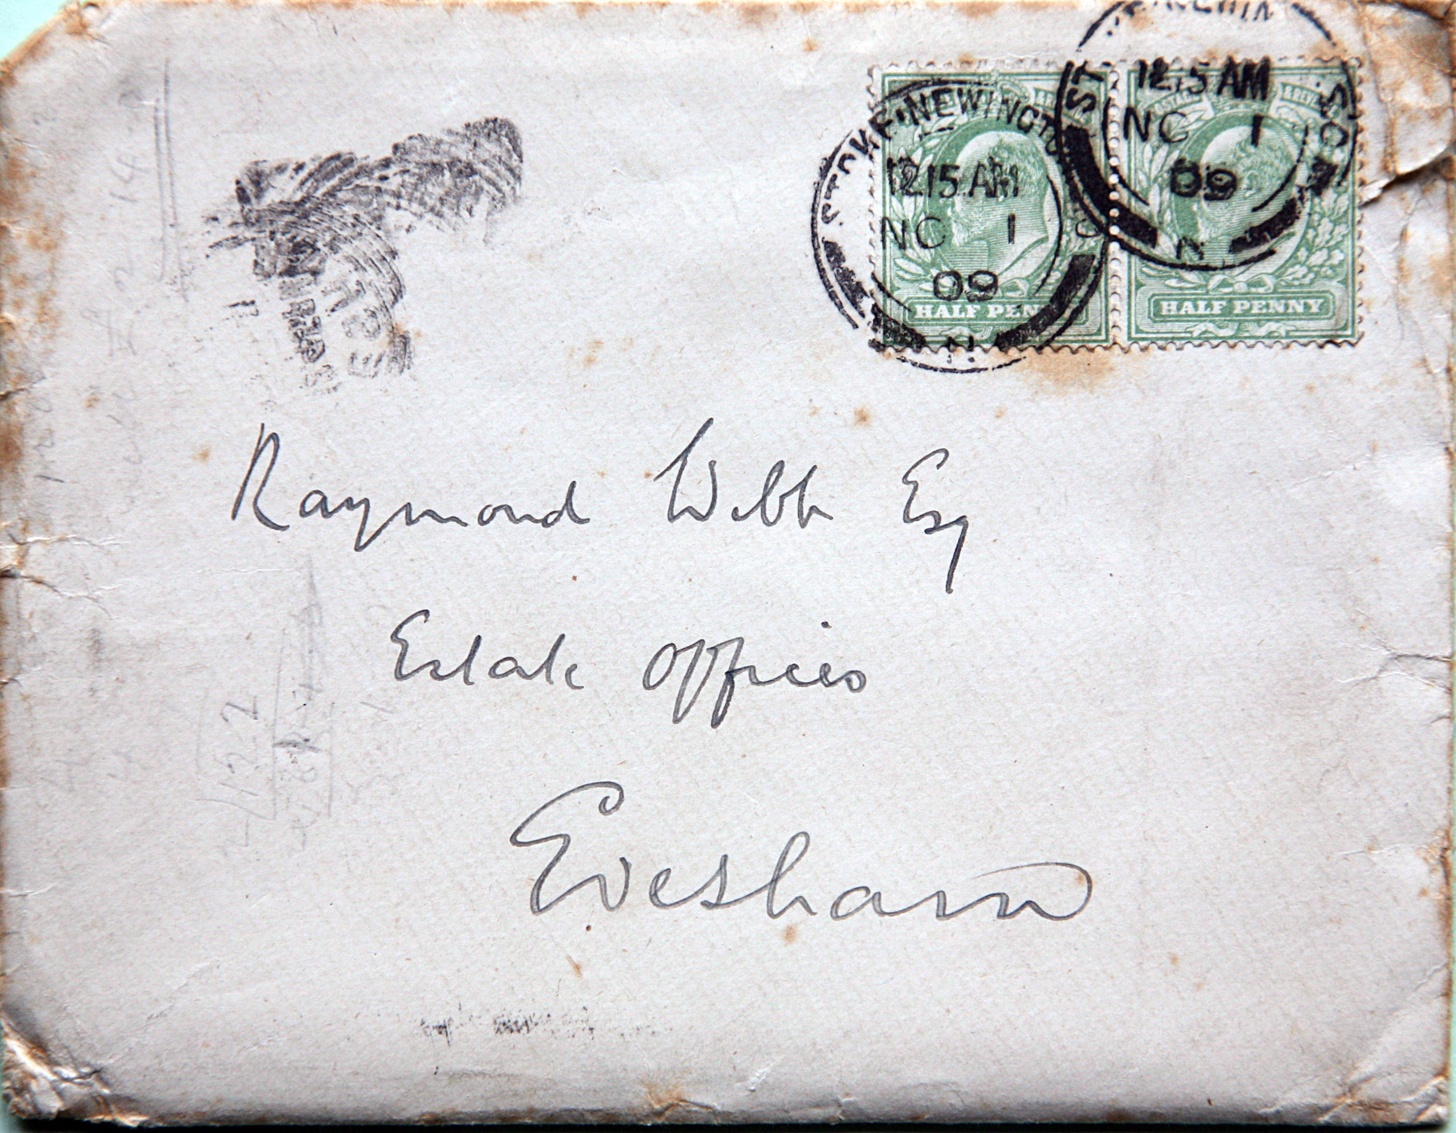 STOKE NEWINGTO
12.15 AM
NO 1
09
N
12.15 AM
NO 1
09
N
HALF PENNY
HALF PENNY
Raymond Webb Esq
Estate Offices
Evesham
122